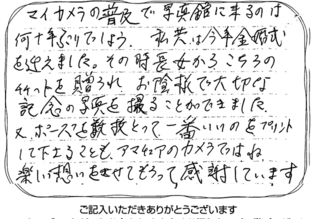 マイカメラの普及で写真館に来るのは
何十年ぶりでしょう。私共は今年金婚式
を迎えました。その時長女からこちらの
チケットを贈られ お陰様で大切な
記念の写真を撮ることができました
又、ポーズを数枚とって一番いいのをプリント
して下さることも、アマチュアのカメラではね
楽しい想いをさせてもらって感謝しています
ご記入いただきありがとうございます